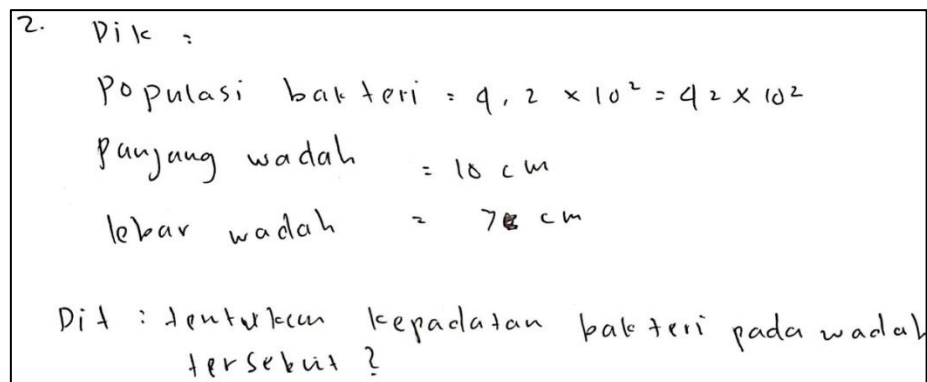 2. Dik :
Populasi bakteri = 4,2 × 10² = 42 × 10²
Panjang wadah = 10 cm
lebar wadah = 7 cm
Dit : tentukan kepadatan bakteri pada wadah
tersebut ?